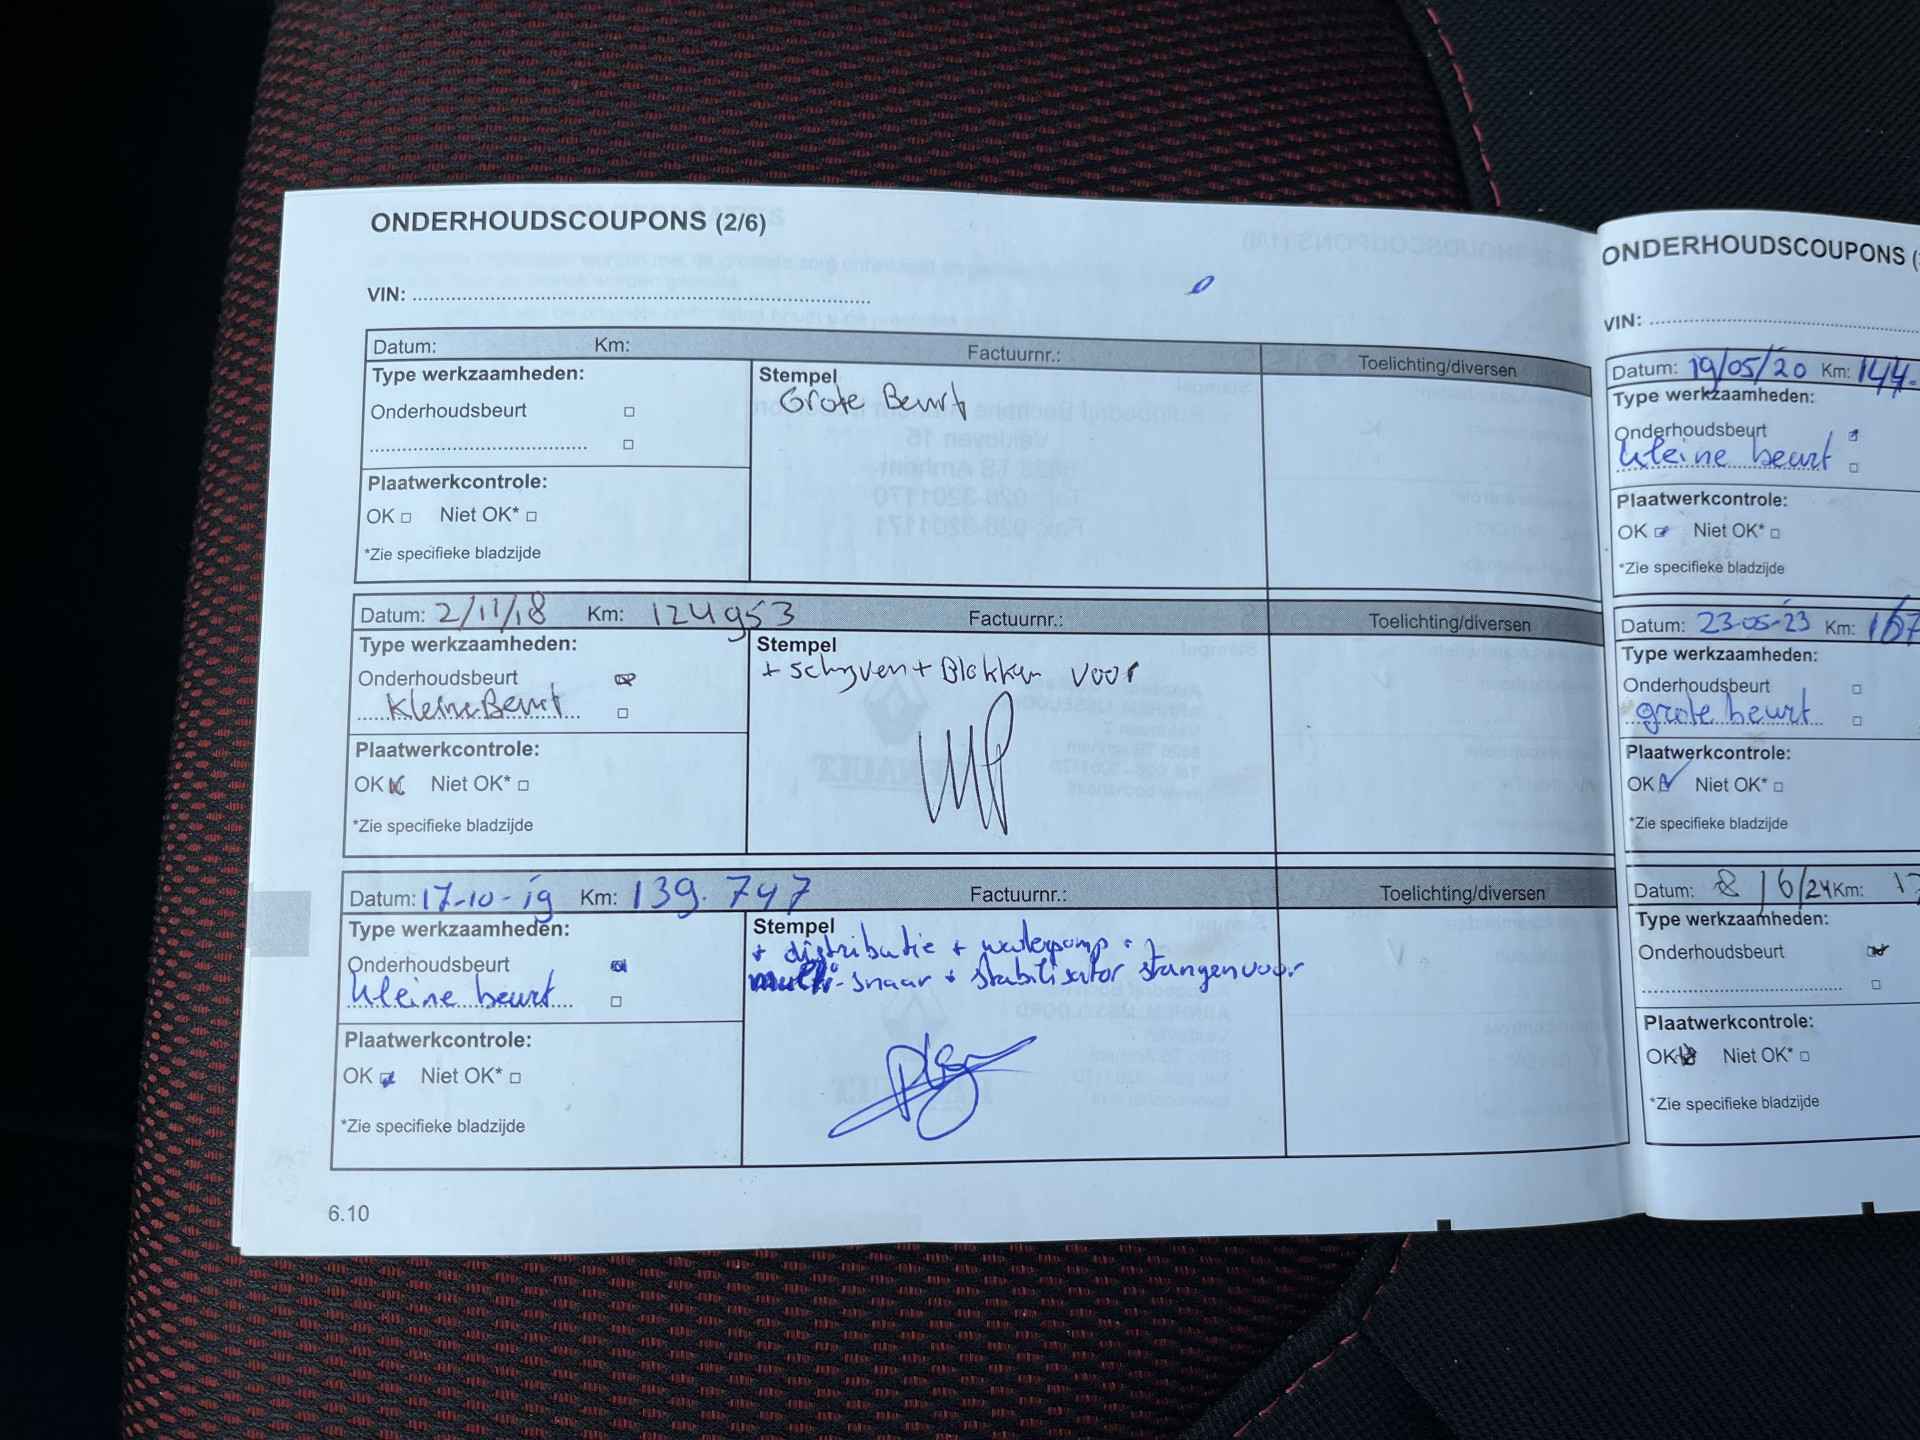 ONDERHOUDSCOUPONS (2/6)
VIN:
Datum: Km: Factuurnr.: Toelichting/diversen
Type werkzaamheden:
Stempel
Grote Beurt
Onderhoudsbeurt
Plaatwerkcontrole:
OK Niet OK*
*Zie specifieke bladzijde
Datum: 2/11/18 Km: 124953 Factuurnr.: Toelichting/diversen
Type werkzaamheden:
Stempel
+ schijven + Blokken voor
Onderhoudsbeurt
Kleine Beurt
Plaatwerkcontrole:
OK Niet OK*
*Zie specifieke bladzijde
Datum: 17-10-19 Km: 139.747 Factuurnr.: Toelichting/diversen
Type werkzaamheden:
Stempel
+ distributie + waterpomp +
multi-snaar + stabilisator stangen voor
Onderhoudsbeurt
kleine beurt
Plaatwerkcontrole:
OK Niet OK*
*Zie specifieke bladzijde
6.10
ONDERHOUDSCOUPONS
VIN:
Datum: 19/05/20 Km: 144.
Type werkzaamheden:
Onderhoudsbeurt
kleine beurt
Plaatwerkcontrole:
OK Niet OK*
*Zie specifieke bladzijde
Datum: 23-05-23 Km: 167
Type werkzaamheden:
Onderhoudsbeurt
grote beurt
Plaatwerkcontrole:
OK Niet OK*
*Zie specifieke bladzijde
Datum: 8/6/24 Km: 17
Type werkzaamheden:
Onderhoudsbeurt
Plaatwerkcontrole:
OK Niet OK*
*Zie specifieke bladzijde